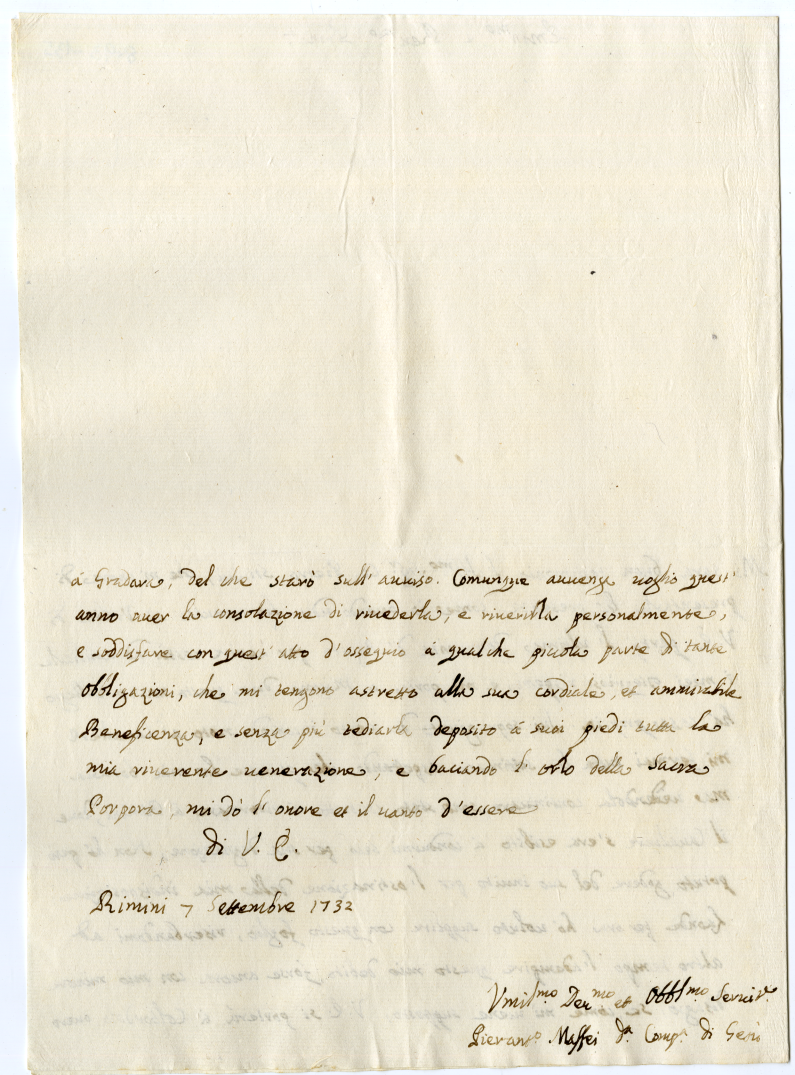 á Gradara, del che starò sull' auuiso. Comunque auuenga uoglio quest'
anno auer la consolazione di riuederla, e riuerirla personalmente,
e soddisfare con quest' atto d'ossequio á qualche picciola parte di tante
obbligazioni, che mi tengono astretto alla sua cordiale, et ammirabile
Beneficenza, e senza più tediarla deposito á suoi piedi tutta la
mia riuerente uenerazione, e baciando l' orlo della Sacra
Porpora, mi dò l' onore et il uanto d'essere
di V. E.
Rimini 7 Settembre 1732
Vmil.mo Deu.mo et Obbl.mo Seruit.e
Pierant.o Maffei d.a Comp.a di Gesù